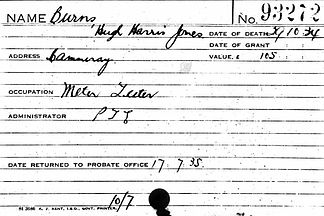 NAME Burns No. 93272
Hugh Harris Jones DATE OF DEATH 10.34
DATE OF GRANT : :
ADDRESS Cammeray VALUE, £ 105 : :
OCCUPATION Meter Tester
ADMINISTRATOR P T
DATE RETURNED TO PROBATE OFFICE 17. 7. 35.
10/7
St 3086 A. J. KENT, I.S.O., GOVT. PRINTER.